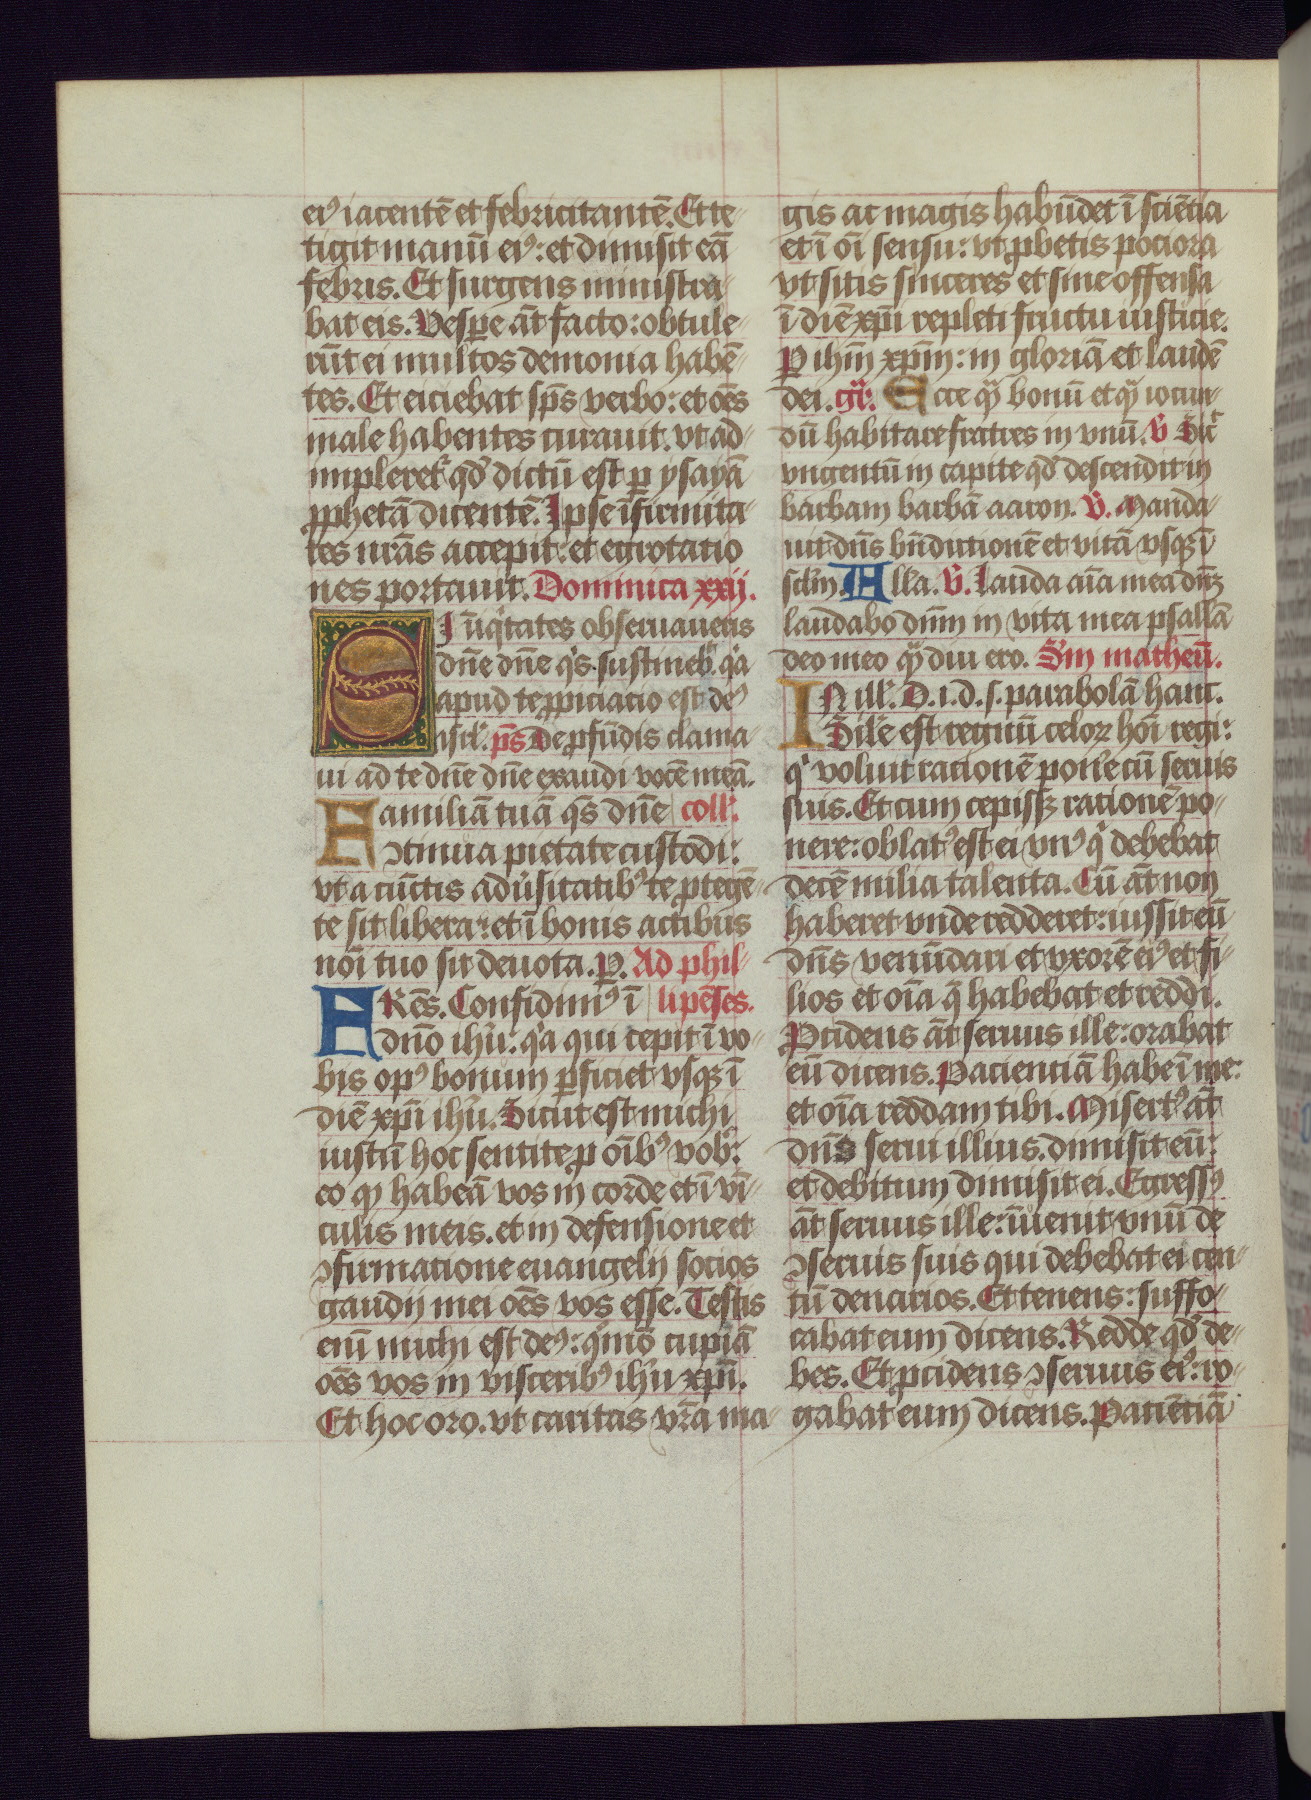 eiꝰ iacentē et febricitantē. Et te-
tigit manū eiꝰ: et dimisit eā
febris. Et surgens ministra-
bat eis. Vespe āt facto: obtule-
rūt ei multos demonia habē-
tes. Et eiciebat sp̄s verbo: et oēs
male habentes curauit. vt ad-
impleret᷑ qd̄ dictū est ꝑ ysayā
ꝓphetā dicentē. Ipse īfirmita-
tes nr̄as accepit: et egrotatio
nes portauit. Dominica xxij.
SI īiqͥtates obseruaueris
dn̄e dn̄e qͥs sustineb᷑. qͥa
apud te ꝓpiciacio est deꝰ
isrl᷑. p̄s De ꝓfūdis clama
ui ad te dn̄e dn̄e exaudi vocē meā.
Familiā tuā qs̄ dn̄e coll᷑.
ↄtinua pietate custodi:
vt a cūctis adu᷑sitatibꝰ te ꝓtegē-
te sit libera: et ī bonis actibus
nōi tuo sit deuota. P. Ad phil-
FRēs. Confidimꝰ ī lipēses.
dn̄o ihū: qͥa qui cepit ī vo-
bis opꝰ bonum ꝑficiet vsqꝫ ī
diē xp̄i ihū. Sicut est michi
iustū hoc sentire ꝓ oībꝰ vob᷑:
eo ꝙ habeā vos in corde et ī vī-
culis meis. et in defensione et
ↄfirmatione euangelij socios
gaudij mei oēs vos esse. Testis
enī michi est deꝰ: qͦmō cupiā
oēs vos in visceribꝰ ihū xp̄i.
Et hoc oro. vt caritas vr̄a ma
gis ac magis habūdet ī sciētia
et ī oī sensu: vt ꝓbetis pociora
vt sitis sinceres et sine offensa
ī diē xp̄i repleti fructu iusticie.
P ihm̄ xp̄m: in gloriā et laudē
dei. gr᷑. Ecce qͣ bonū et qͣ iocun-
dū habitare fratres in vnū. V Sic᷑
vngentū in capite qd̄ descendit in
barbam barbā aaron. V. Manda-
uit dn̄s bn̄dictionē et vitā vsqꝫ ī
sclm̄. Alla. V. Lauda aīa mea dn̄ꝫ
laudabo dnm̄ in vita mea psallā
deo meo qͣ diu ero. S᷑m matheū.
IN ill᷑. D. i. d. s. parabolā hanc.
Sil̄e est regnū celoꝝ hōi regi:
qͥ voluit racionē pon᷑e cū seruis
suis. Et cum cepisꝫ rationē po-
nere: oblatꝰ est ei vnꝰ qͥ debebat
decē milia talenta. Cū āt non
haberet vnde redderet: iussit eū
dn̄s venūdari et vxorē eiꝰ et fi-
lios et oīa q̄ habebat et reddi.
Pcidens āt seruus ille: orabat
eū dicens. Pacienciā habe ī me:
et oīa reddam tibi. Misertꝰ āt
dn̄s serui illius. dimisit eū:
et debitum dimisit ei. Egressꝰ
āt seruus ille: īuenit vnū de
ↄseruis suis qui debebat ei cen-
tū denarios. Et tenens: suffo-
cabat eum dicens. Redde qd̄ de-
bes. Et ꝓcidens ↄseruus eiꝰ: ro-
gabat eum dicens. Paciētiā